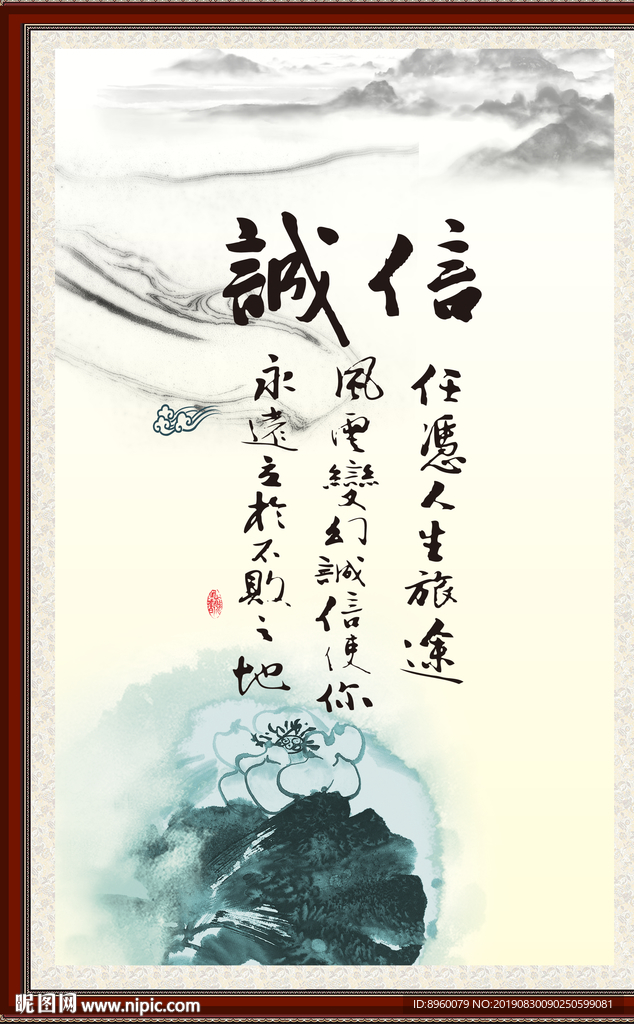 誠信
任憑人生旅途
風雲變幻誠信使你
永遠立於不敗之地
昵图网 www.nipic.com
ID:8960079 NO:20190830090250599081